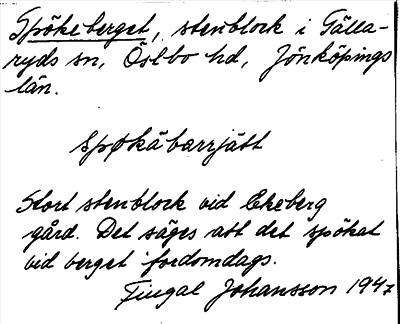 Spökeberget, stenblock i Gälla-
ryds sn, Östbo hd, Jönköpings
län.
spøkäbarrjätt
Stort stenblock vid Ekeberg
gård. Det säges att det spökat
vid berget i fordomdags.
Fingal Johansson 1947